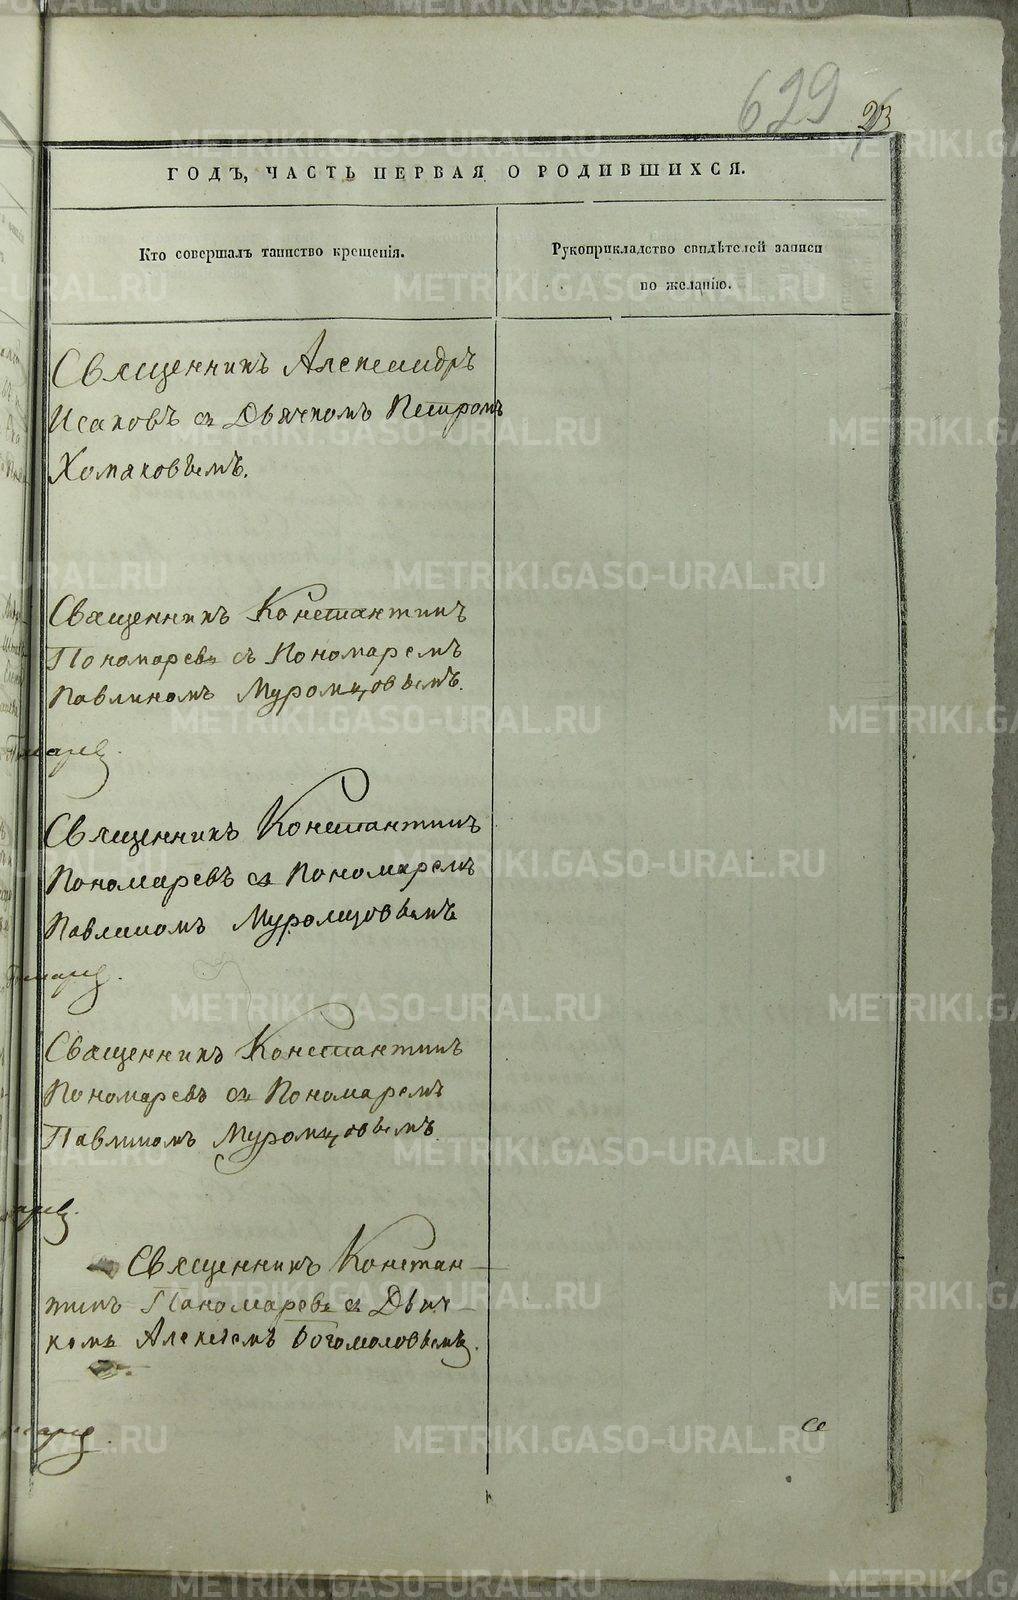 629
23
ГОДЪ, ЧАСТЬ ПЕРВАЯ О РОДИВШИХСЯ.
Кто совершалъ таинство крещенія.
Рукоприкладство свидѣтелей записи
по желанію.
Священникъ Александръ
Исаковъ съ Дьячкомъ Петромъ
Хомяковъемъ.
Священникъ Константинъ
Пономаревъ съ Пономаремъ
Павлиномъ Муромцовъемъ.
Священникъ Константинъ
Пономаревъ съ Пономаремъ
Павлиномъ Муромцовъемъ
Священникъ Константинъ
Пономаревъ съ Пономаремъ
Павлиномъ Муромцовъемъ.
Священникъ Констан-
тинъ Пономаревъ съ Дьяч-
комъ Алексѣемъ Богомоловъемъ.
METRIKI.GASO-URAL.RU